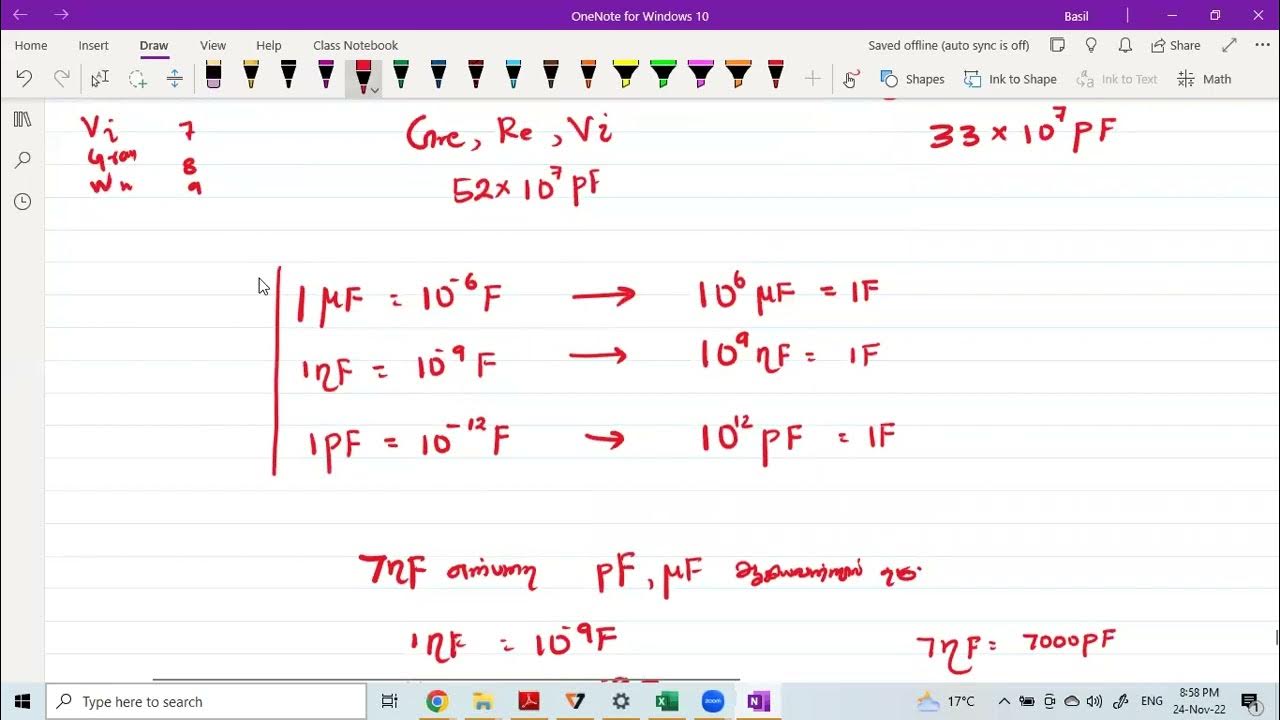 OneNote for Windows 10
Basil
Home Insert Draw View Help Class Notebook
Saved offline (auto sync is off) Share
Shapes Ink to Shape Ink to Text Math
Vi 7
Gre, Re, Vi
33 × 10⁷ pF
8
9
52 × 10⁷ pF
1 μF = 10⁻⁶ F → 10⁶ μF = 1F
1ηF = 10⁻⁹ F → 10⁹ ηF = 1F
1pF = 10⁻¹² F → 10¹² pF = 1F
7ηF pF, μF
1ηF = 10⁻⁹F
7ηF = 7000pF
Type here to search
17°C
ENG
8:58 PM
24-Nov-22
1